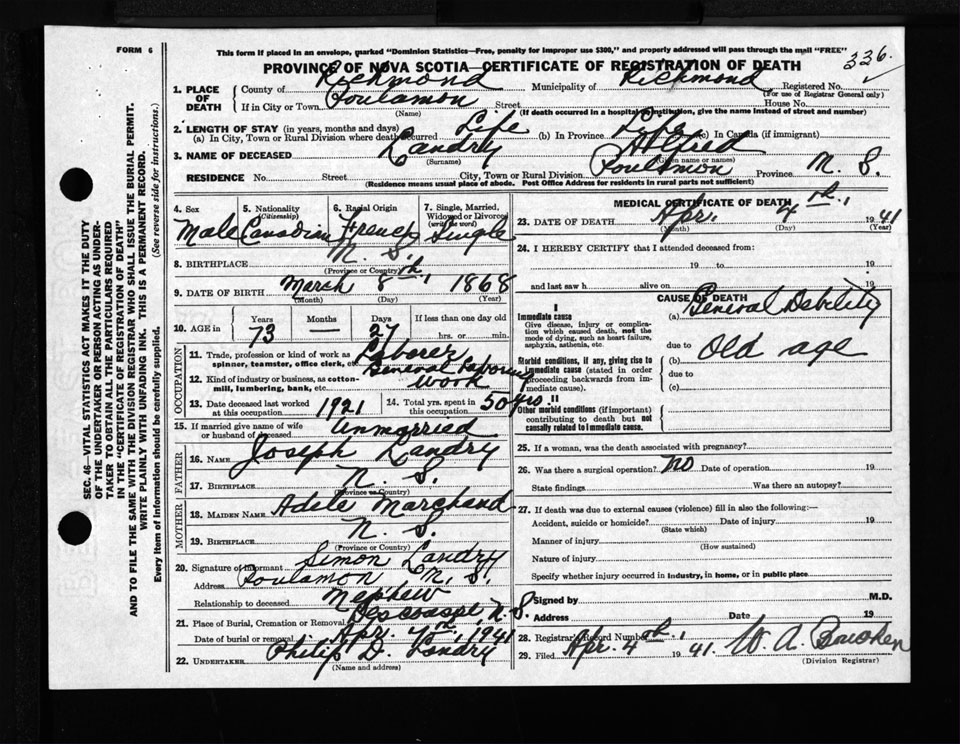 FORM 6
This form if placed in an envelope, marked "Dominion Statistics—Free, penalty for improper use $300," and properly addressed will pass through the mail "FREE"
336.
PROVINCE OF NOVA SCOTIA—CERTIFICATE OF REGISTRATION OF DEATH
1. PLACE OF DEATH
County of Richmond Municipality of Richmond Registered No.
(For use of Registrar General only)
If in City or Town Poulamon Street House No.
(Name) (If death occurred in a hospital or institution, give the name instead of street and number)
2. LENGTH OF STAY (in years, months and days)
(a) In City, Town or Rural Division where death occurred Life (b) In Province Life (c) In Canada (if immigrant)
3. NAME OF DECEASED Landry Alfred
(Surname) (Given name or names)
RESIDENCE No. Street City, Town or Rural Division Poulamon Province N. S.
(Residence means usual place of abode. Post Office Address for residents in rural parts not sufficient)
4. Sex Male
5. Nationality (Citizenship) Canadian
6. Racial Origin French
7. Single, Married, Widowed or Divorced (write the word) Single
8. BIRTHPLACE N. S.
(Province or Country)
9. DATE OF BIRTH March 8th, 1868
(Month) (Day) (Year)
10. AGE in Years 73 Months — Days 27 If less than one day old
hrs. or min.
OCCUPATION
11. Trade, profession or kind of work as spinner, teamster, office clerk, etc. Laborer
12. Kind of industry or business, as cotton-mill, lumbering, bank, etc. General Laboring work
13. Date deceased last worked at this occupation 1921
14. Total yrs. spent in this occupation 50 yrs.
15. If married give name of wife or husband of deceased Unmarried
FATHER
16. Name Joseph Landry
17. Birthplace N. S.
(Province or Country)
MOTHER
18. Maiden Name Adele Marchand
19. Birthplace N. S.
(Province or Country)
20. Signature of informant Simon Landry
Address Poulamon, N. S.
Relationship to deceased Nephew
21. Place of Burial, Cremation or Removal Descousse, N. S.
Date of burial or removal Apr. 1941
22. UNDERTAKER Philip D. Landry
MEDICAL CERTIFICATE OF DEATH
23. DATE OF DEATH Apr. 4th, 1941
(Month) (Day) (Year)
24. I HEREBY CERTIFY that I attended deceased from:
19 to 19
and last saw h alive on 19
CAUSE OF DEATH
I
Immediate cause
Give disease, injury or complication which caused death, not the mode of dying, such as heart failure, asphyxia, asthenia, etc.
(a) General Debility
due to
Morbid conditions, if any, giving rise to immediate cause (stated in order proceeding backwards from immediate cause).
(b) Old age
due to
(c)
II
Other morbid conditions (if important) contributing to death but not causally related to immediate cause.
25. If a woman, was the death associated with pregnancy?
26. Was there a surgical operation? No Date of operation 19
State findings Was there an autopsy?
27. If death was due to external causes (violence) fill in also the following:—
Accident, suicide or homicide? Date of injury 19
(State which)
Manner of injury
(How sustained)
Nature of injury
Specify whether injury occurred in industry, in home, or in public place
Signed by M.D.
Address Date 19
28. Registrar's Record Number
29. Filed Apr. 4th, 1941. W. A.
(Division Registrar)
SEC. 46—VITAL STATISTICS ACT MAKES IT THE DUTY
OF THE UNDERTAKER OR PERSON ACTING AS UNDER-
TAKER TO OBTAIN ALL THE PARTICULARS REQUIRED
IN THE "CERTIFICATE OF REGISTRATION OF DEATH"
AND TO FILE THE SAME WITH THE DIVISION REGISTRAR WHO SHALL ISSUE THE BURIAL PERMIT.
WRITE PLAINLY WITH UNFADING INK. THIS IS A PERMANENT RECORD.
Every item of Information should be carefully supplied. (See reverse side for instructions.)